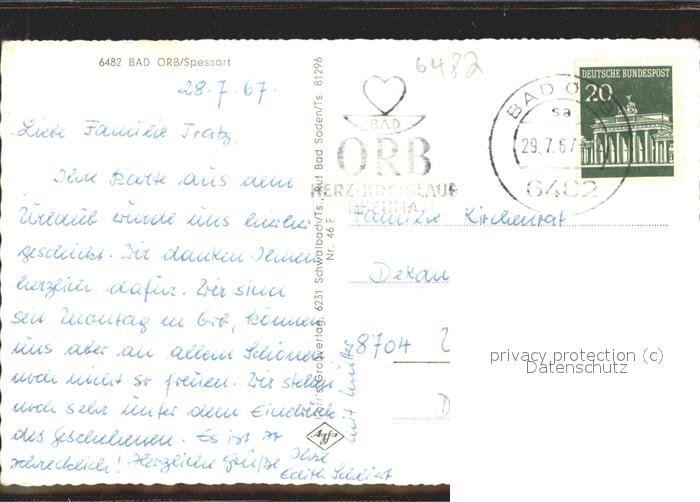 6482 BAD ORB/Spessart
28.7.67.
Liebe Familie Tratz,
Ihre Karte aus dem
Urlaub wurde uns hierher
geschickt. Wir danken Ihnen
herzlich dafür. Wir sind
seit Montag in Orb, können
uns aber an allem Schönen
noch nicht so freuen. Wir stehen
noch sehr unter dem Eindruck
des Geschehenen. Es ist so
schrecklich! Herzliche Grüße Ihre
Edith
mit Mutter
Großverlag, 6231 Schwalbach/Ts., Ruf Bad Soden/Ts. 81296
Nr. 46 F
Agfa
6482
BAD
ORB
HERZ-KREISLAUF
RHEUMA
BAD ORB
sa
29.7.67
6482
DEUTSCHE BUNDESPOST
20
Familie Kirchenrat
Dekan
8704
D
privacy protection (c)
Datenschutz